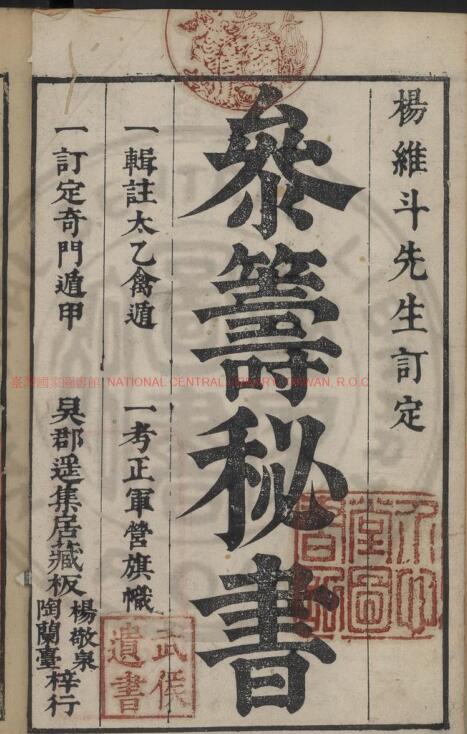 楊維斗先生訂定
參籌秘書
一輯註太乙禽遁 一考正軍營旗幟
一訂定奇門遁甲
吳郡遥集居藏板
楊敬泉
陶蘭臺
梓行
武侯
遺書
臺灣國家圖書館 NATIONAL CENTRAL LIBRARY, TAIWAN, R.O.C